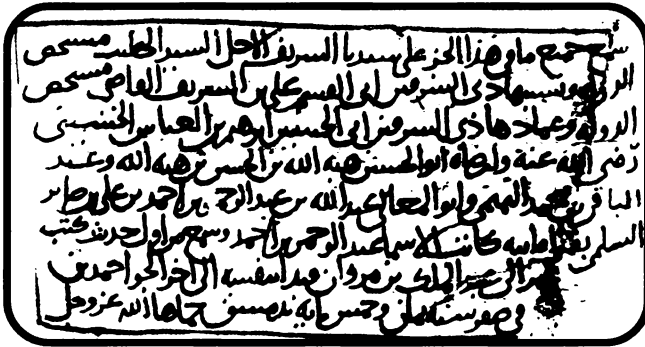 سمع جميع ما في هذا الجز على سيدنا الشريف الاجل السيد الخطيب مستخص
الدولة ونسيبها ذي الشرفين ابي القسم علي بن الشريف القاضي مستخص
الدولة وعمادها ذي الشرفين ابي الحسين ابرهيم بن العباس الحسيني
رضي الله عنه وارضاه ابو الحسين هبة الله بن الحسن بن هبة الله وعبد
الباقي بن محمد التميمي وابو المعالي عبد الله بن عبد الرحمن بن احمد بن علي بن صابر
السلمي بقراة ابيه كاتب الاسما عبد الرحمن بن احمد وسمع من اول حديث كتب
الى عبد الملك بن مروان الى اخر الجز احمد بن
في صفر سنة ثمان وخمس مايه بدمشق حماها الله عز وجل